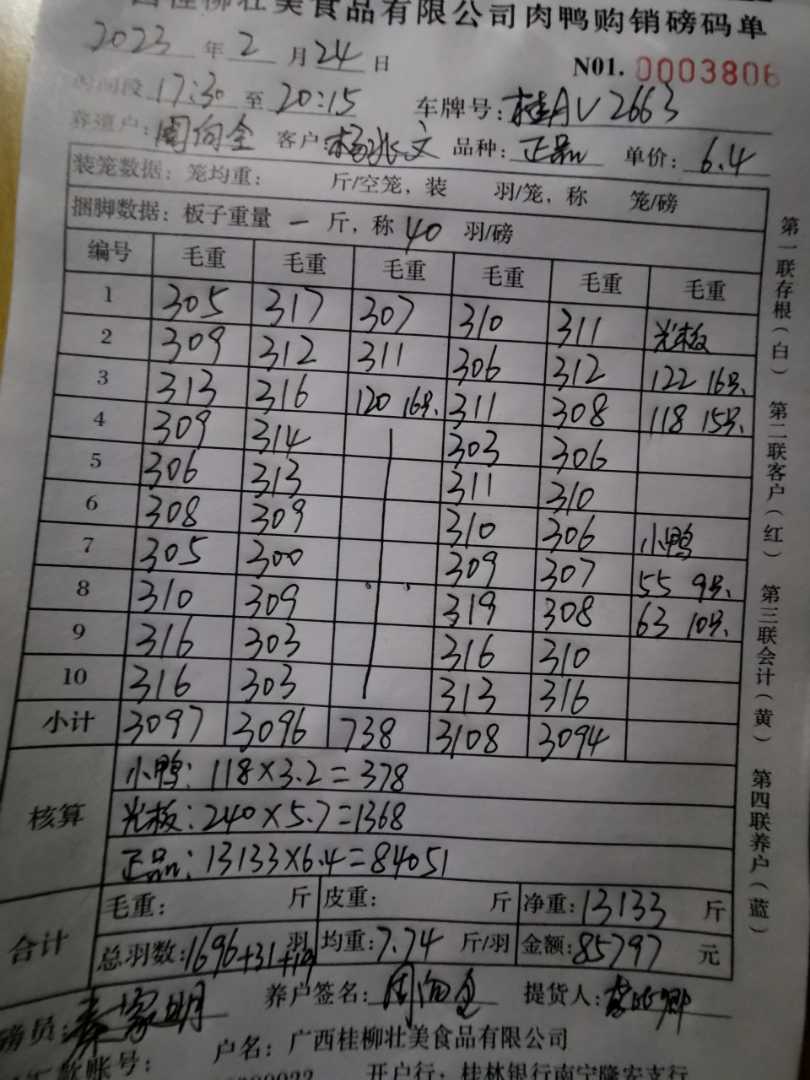 西桂柳壮美食品有限公司肉鸭购销磅码单
2023 年 2 月 24 日 N01. 0003806
时间段 17:30 至 20:15 车牌号: 桂AV2663
养殖户: 周向全 客户: 杨兆文 品种: 正品 单价: 6.4
装笼数据: 笼均重: 斤/空笼, 装 羽/笼, 称 笼/磅
捆脚数据: 板子重量 一 斤, 称 40 羽/磅
编号 毛重 毛重 毛重 毛重 毛重 毛重
1 305 317 307 310 311 光板
2 309 312 311 306 312 122 16只.
3 313 316 120 16只. 311 308 118 15只.
4 309 314 303 306
5 306 313 311 310
6 308 309 310 306 小鸭
7 305 300 309 307 55 9只.
8 310 309 319 308 63 10只.
9 316 303 316 310
10 316 303 313 316
小计 3097 3096 738 3108 3094
核算
小鸭: 118×3.2=378
光板: 240×5.7=1368
正品: 13133×6.4=84051
合计
毛重: 斤 皮重: 斤 净重: 13133 斤
总羽数: 1696+31+19 羽 均重: 7.74 斤/羽 金额: 85797 元
磅员: 秦家明 养户签名: 周向全 提货人:
汇款账号: 户名: 广西桂柳壮美食品有限公司
开户行: 桂林银行南宁隆安支行
第一联存根(白) 第二联客户(红) 第三联会计(黄) 第四联养户(蓝)